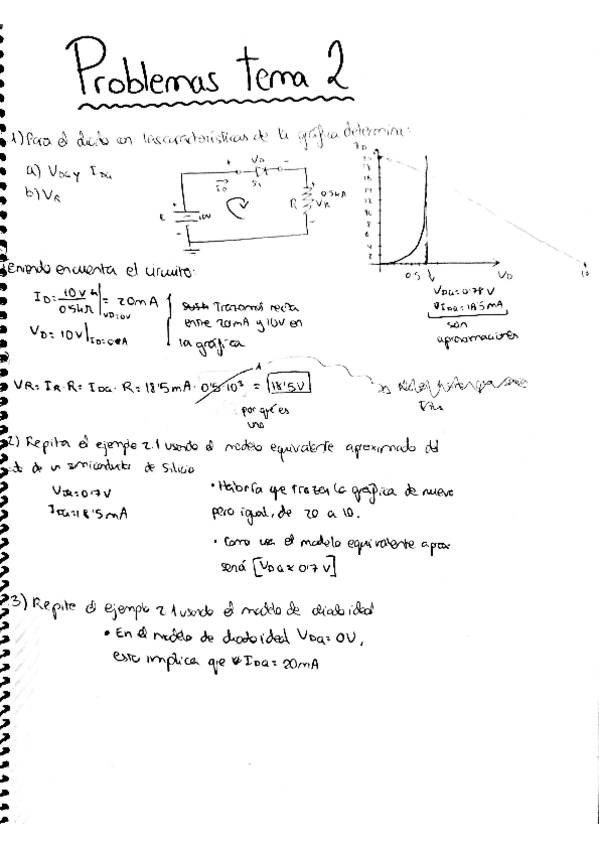 Problemas tema 2
1) Para el diodo con las características de la gráfica determine:
a) VDQ y IDQ
b) VR
VD
ID
Si
0'5kΩ
R
VR
E
10V
ID
20
18
16
14
12
10
8
6
4
2
0'5
VD
10
VDQ = 0'78 V
IDQ = 18'5 mA
son
aproximaciones
Teniendo en cuenta el circuito:
ID = 10V / 0'5kΩ | VD=0V = 20mA
VD = 10V | ID=0A
Trazamos recta
entre 20mA y 10V en
la gráfica
VR = IR·R = IDQ·R = 18'5mA · 0'5·10³ = 18'5V
por qué es
una
2) Repita el ejemplo 2.1 usando el modelo equivalente aproximado del
de un semiconductor de Silicio
VDQ = 0'7V
IDQ = 18'5mA
• Habría que trazar la gráfica de nuevo
pero igual, de 20 a 10.
• Como usa el modelo equivalente aprox
será [VDQ ≈ 0'7V]
3) Repite el ejemplo 2.1 usando el modelo de diodo ideal
• En el modelo de diodo ideal VDQ = 0V,
esto implica que IDQ = 20mA